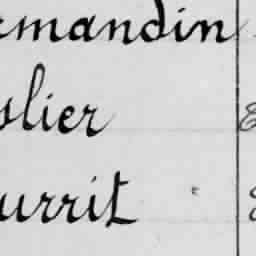 rmandin
slier
urrit